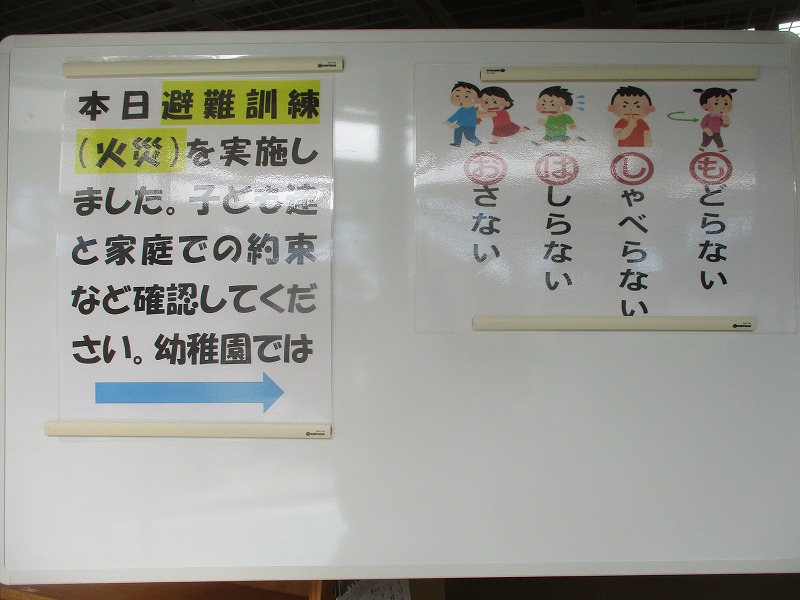 本日避難訓練
(火災)を実施し
ました。子ども達
と家庭での約束
など確認してくだ
さい。幼稚園では
おさない
はしらない
しゃべらない
もどらない